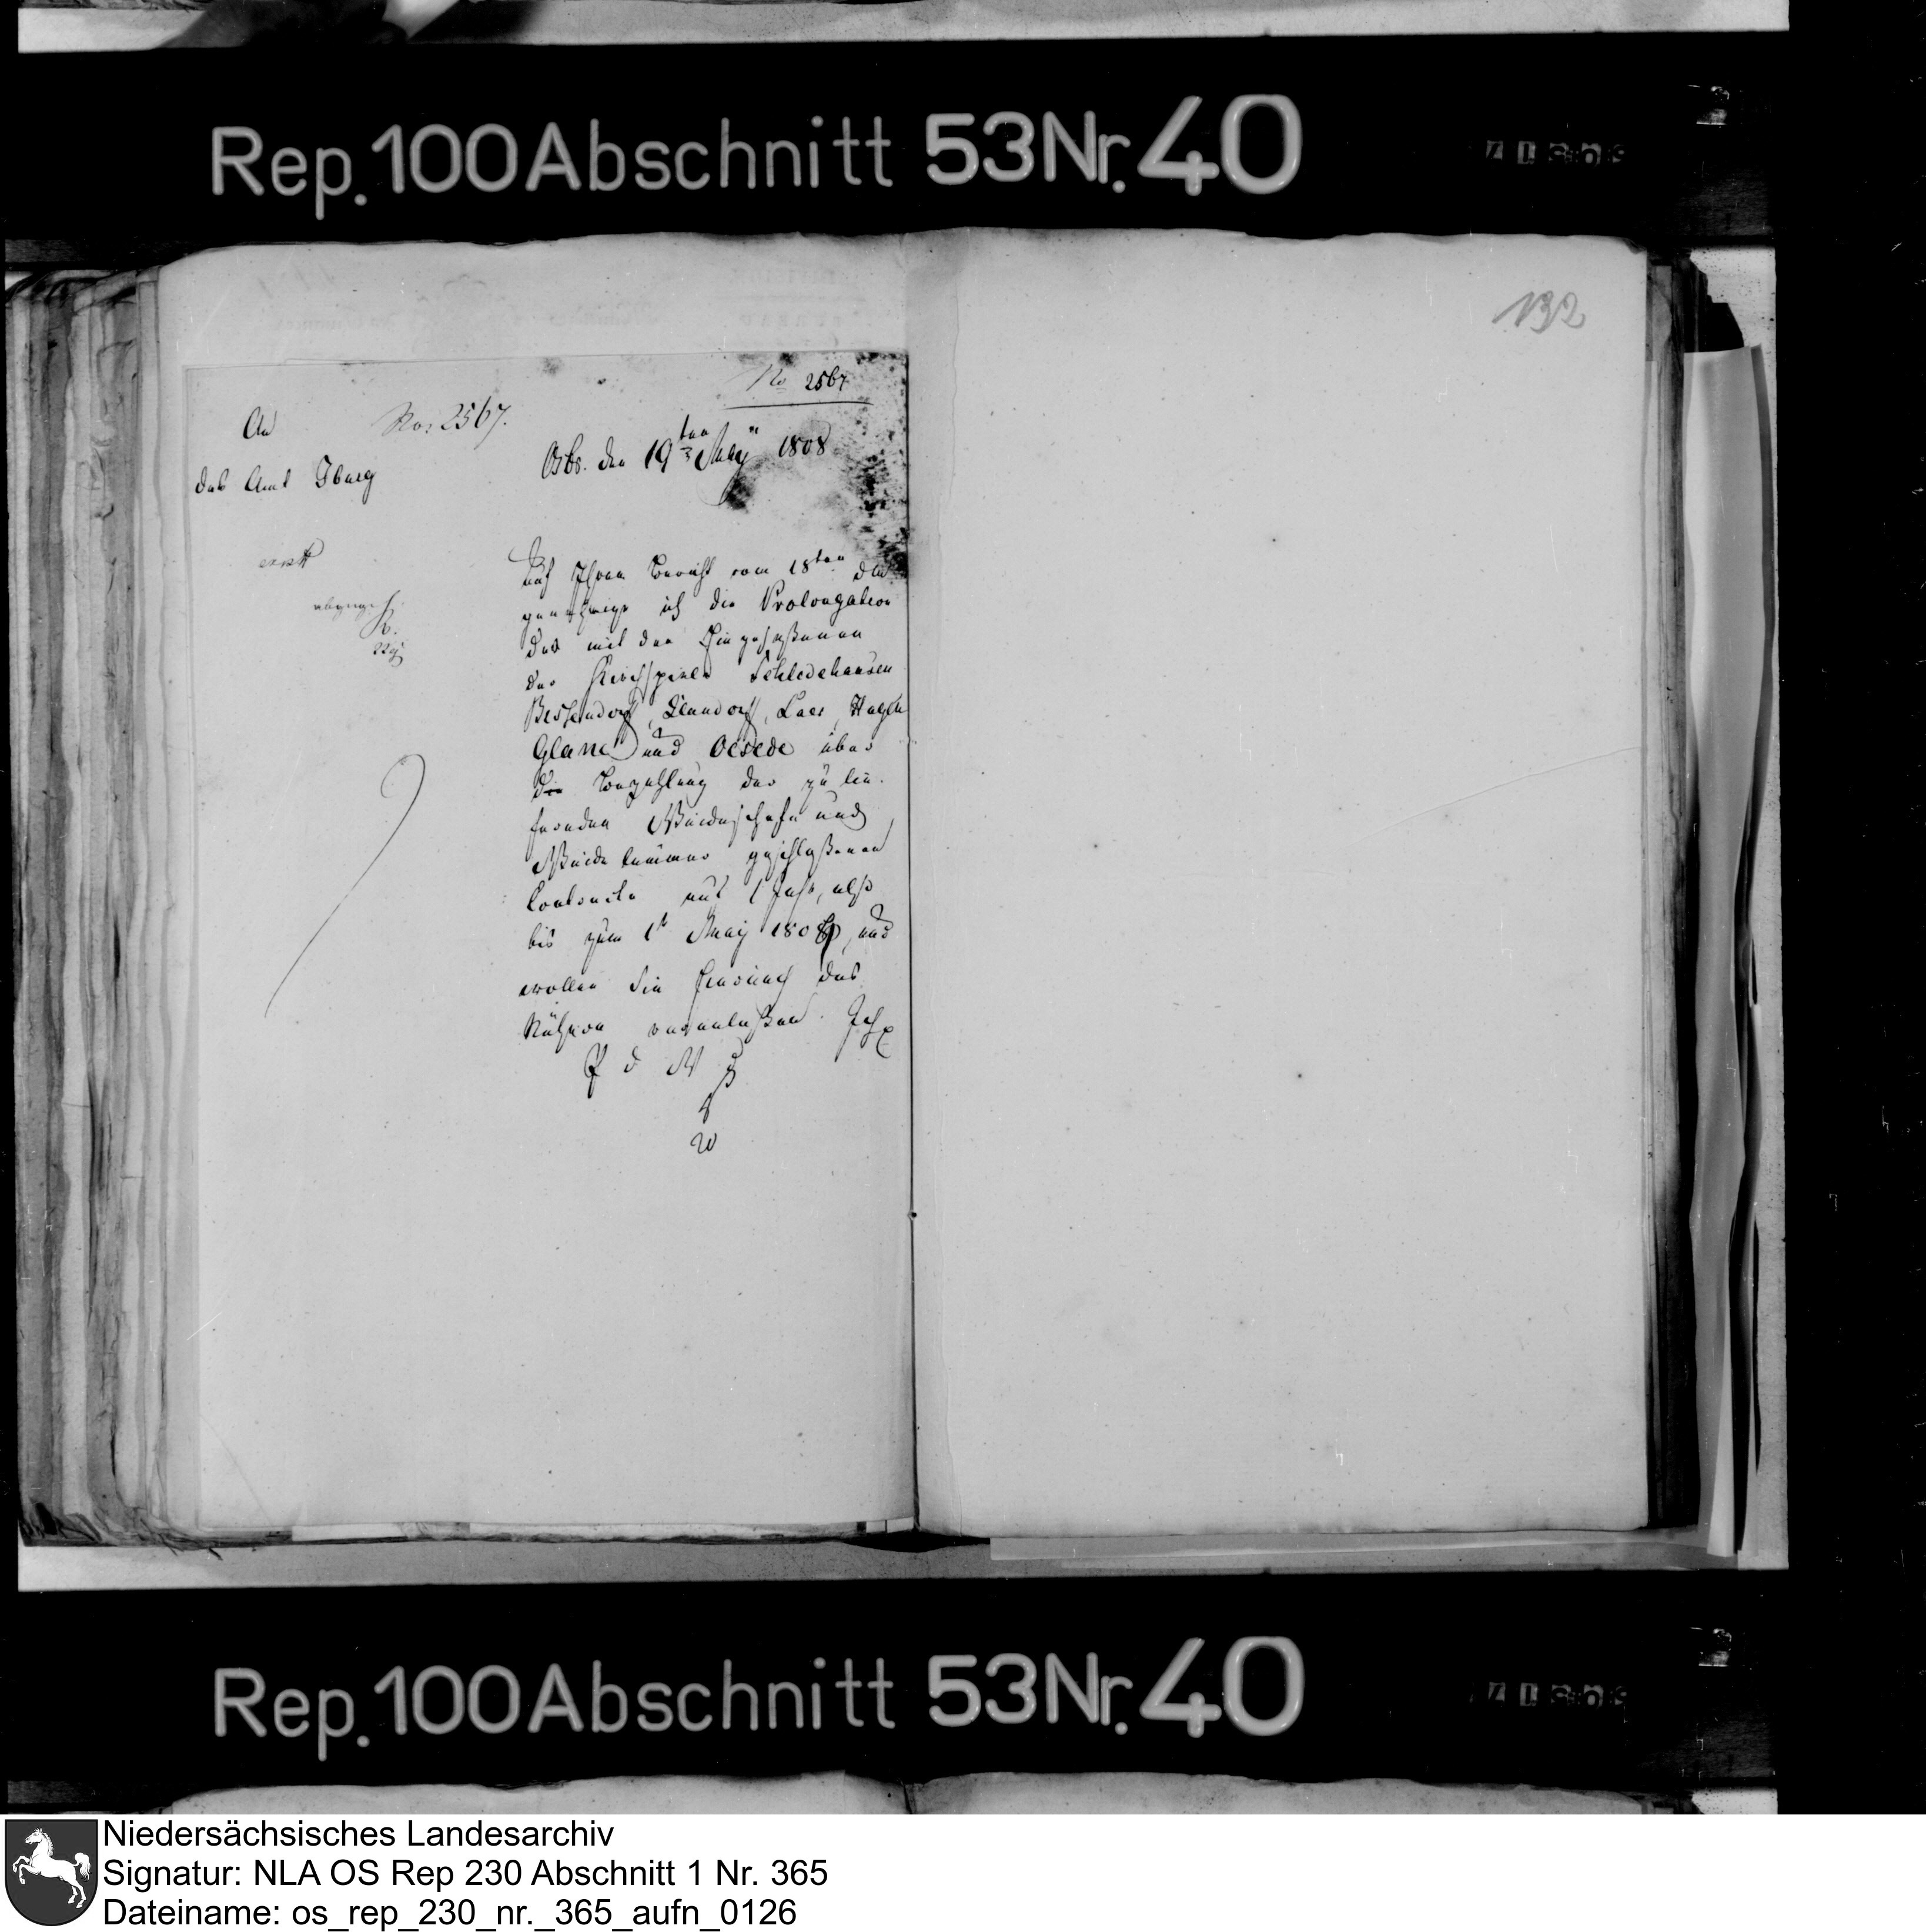 Rep. 100 Abschnitt 53 Nr. 40
132
No 2567
An
No: 2567.
das Amt Iburg
Osb. den 19ten May 1808
Auf Ihren Bericht vom 18ten
genehmige ich die Prolongation
des mit den Eingeseßenen
der Kirchspiele Schledehausen
Bissendorf, Glandorf, Laer, Hagen
Glane und Oesede über
die Bezahlung der zu lie-
fernden Weideschafe und
Weide Lämmer geschloßenen
Contracts auf 1 Jahr, also
bis zum 1t May 1809, und
wollen Sie hernach das
Nähere veranlaßen. Ich
P d W
20
Rep. 100 Abschnitt 53 Nr. 40
Niedersächsisches Landesarchiv
Signatur: NLA OS Rep 230 Abschnitt 1 Nr. 365
Dateiname: os_rep_230_nr._365_aufn_0126